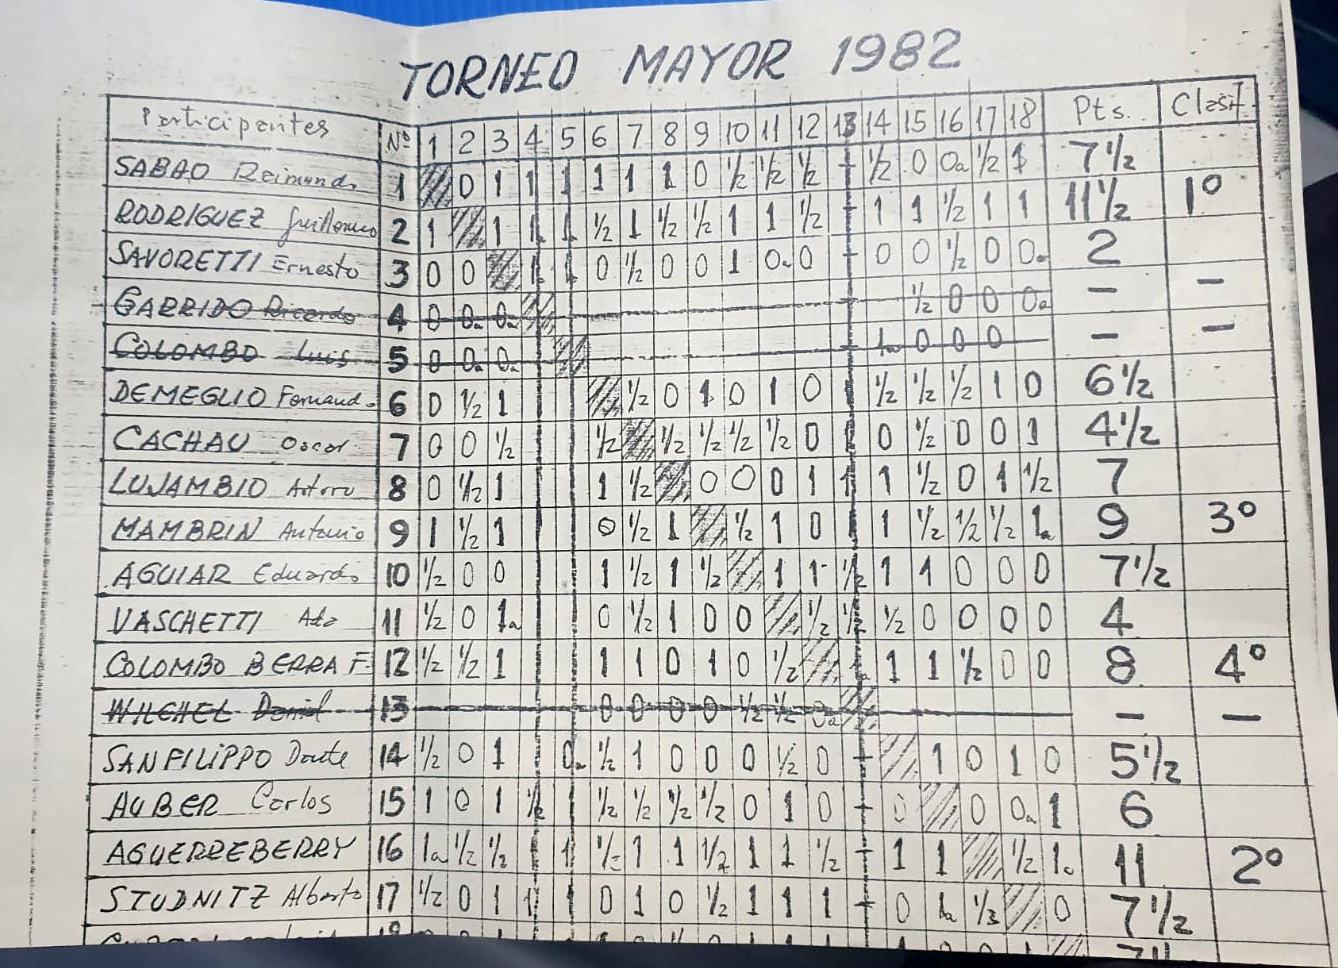 TORNEO MAYOR 1982
Participantes Nº 1 2 3 4 5 6 7 8 9 10 11 12 13 14 15 16 17 18 Pts. Clasif.
SABAO Reimundo 1 0 1 1 1 1 1 1 0 ½ ½ ½ - ½ 0 0a ½ 1 7½
RODRIGUEZ Guillermo 2 1 1 1 1 ½ 1 ½ ½ 1 1 ½ - 1 1 ½ 1 1 11½ 1º
SAVORETTI Ernesto 3 0 0 1 1 0 ½ 0 0 1 0a 0 - 0 0 ½ 0 0a 2
GARRIDO Ricardo 4 0 0a 0a ½ 0 0 0a - -
COLOMBO Luis 5 0 0a 0a 1a 0 0 0 - -
DEMEGLIO Fernando 6 0 ½ 1 ½ 0 1 0 1 0 1 ½ ½ ½ 1 0 6½
CACHAU Oscar 7 0 0 ½ ½ ½ ½ ½ ½ 0 1 0 ½ 0 0 1 4½
LUJAMBIO Arturo 8 0 ½ 1 1 ½ 0 0 0 1 1 1 ½ 0 1 ½ 7
MAMBRIN Antonio 9 1 ½ 1 0 ½ 1 ½ 1 0 1 1 ½ ½ ½ 1a 9 3º
AGUIAR Eduardo 10 ½ 0 0 1 ½ 1 ½ 1 1 ½ 1 1 0 0 0 7½
VASCHETTI 11 ½ 0 1a 0 ½ 1 0 0 ½ ½ ½ 0 0 0 0 4
COLOMBO BERRA F. 12 ½ ½ 1 1 1 0 1 0 ½ 1a 1 1 ½ 0 0 8 4º
WILCHEL Daniel 13 0 0 0 0 ½ ½ 0a - -
SANFILIPPO Dante 14 ½ 0 1 0a ½ 1 0 0 0 ½ 0 - 1 0 1 0 5½
AUBER Carlos 15 1 0 1 ½ ½ ½ ½ ½ 0 1 0 - 0 0 0a 1 6
AGUERREBERRY 16 1a ½ ½ 1 1 ½ 1 1 ½ 1 1 ½ - 1 1 ½ 1a 11 2º
STUDNITZ Alberto 17 ½ 0 1 1 1 0 1 0 ½ 1 1 1 - 0 1a ½ 0 7½
18